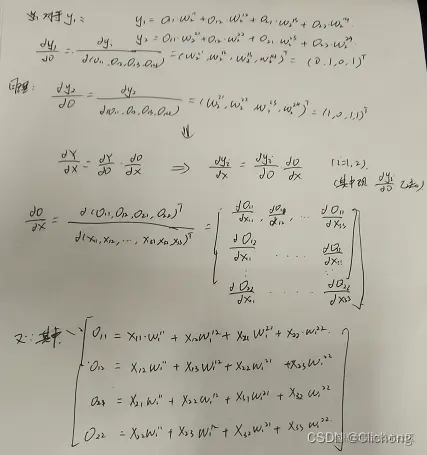 当对于y₁: y₁ = O₁₁·w₂¹¹ + O₁₂·w₂¹² + O₂₁·w₂¹³ + O₂₂·w₂¹⁴
y₂ = O₁₁·w₂²¹ + O₁₂·w₂²² + O₂₁·w₂²³ + O₂₂·w₂²⁴
dy₁/dO = dy₁/d(O₁₁,O₁₂,O₂₁,O₂₂) = (w₂¹¹, w₂¹², w₂¹³, w₂¹⁴)ᵀ = (0,1,0,1)ᵀ
同理: dy₂/dO = dy₂/d(O₁₁,O₁₂,O₂₁,O₂₂) = (w₂²¹, w₂²², w₂²³, w₂²⁴)ᵀ = (1,0,1,1)ᵀ
⇓
dY/dX = dY/dO · dO/dX ⇒ dyᵢ/dx = dyᵢ/dO · dO/dx (i=1,2)
(其中 dyᵢ/dO 已求)
dO/dX = d(O₁₁,O₁₂,O₂₁,O₂₂)ᵀ/d(x₁₁,x₁₂,...,x₃₁,x₃₂,x₃₃)ᵀ = [dO₁₁/dx₁₁, dO₁₁/dx₁₂, ... dO₁₁/dx₃₃
dO₁₂/dx₁₁ ..... dO₁₂/dx₃₃
dO₂₂/dx₁₁ ..... dO₂₂/dx₃₃]
又∵其中 [O₁₁ = x₁₁·w₁¹¹ + x₁₂w₁¹² + x₂₁w₁²¹ + x₂₂·w₁²²
O₁₂ = x₁₂w₁¹¹ + x₁₃w₁¹² + x₂₂w₁²¹ + x₂₃w₁²²
O₂₁ = x₂₁w₁¹¹ + x₂₂w₁¹² + x₃₁w₁²¹ + x₃₂w₁²²
O₂₂ = x₂₂w₁¹¹ + x₂₃w₁¹² + x₃₂w₁²¹ + x₃₃w₁²²]
CSDN @Clichong